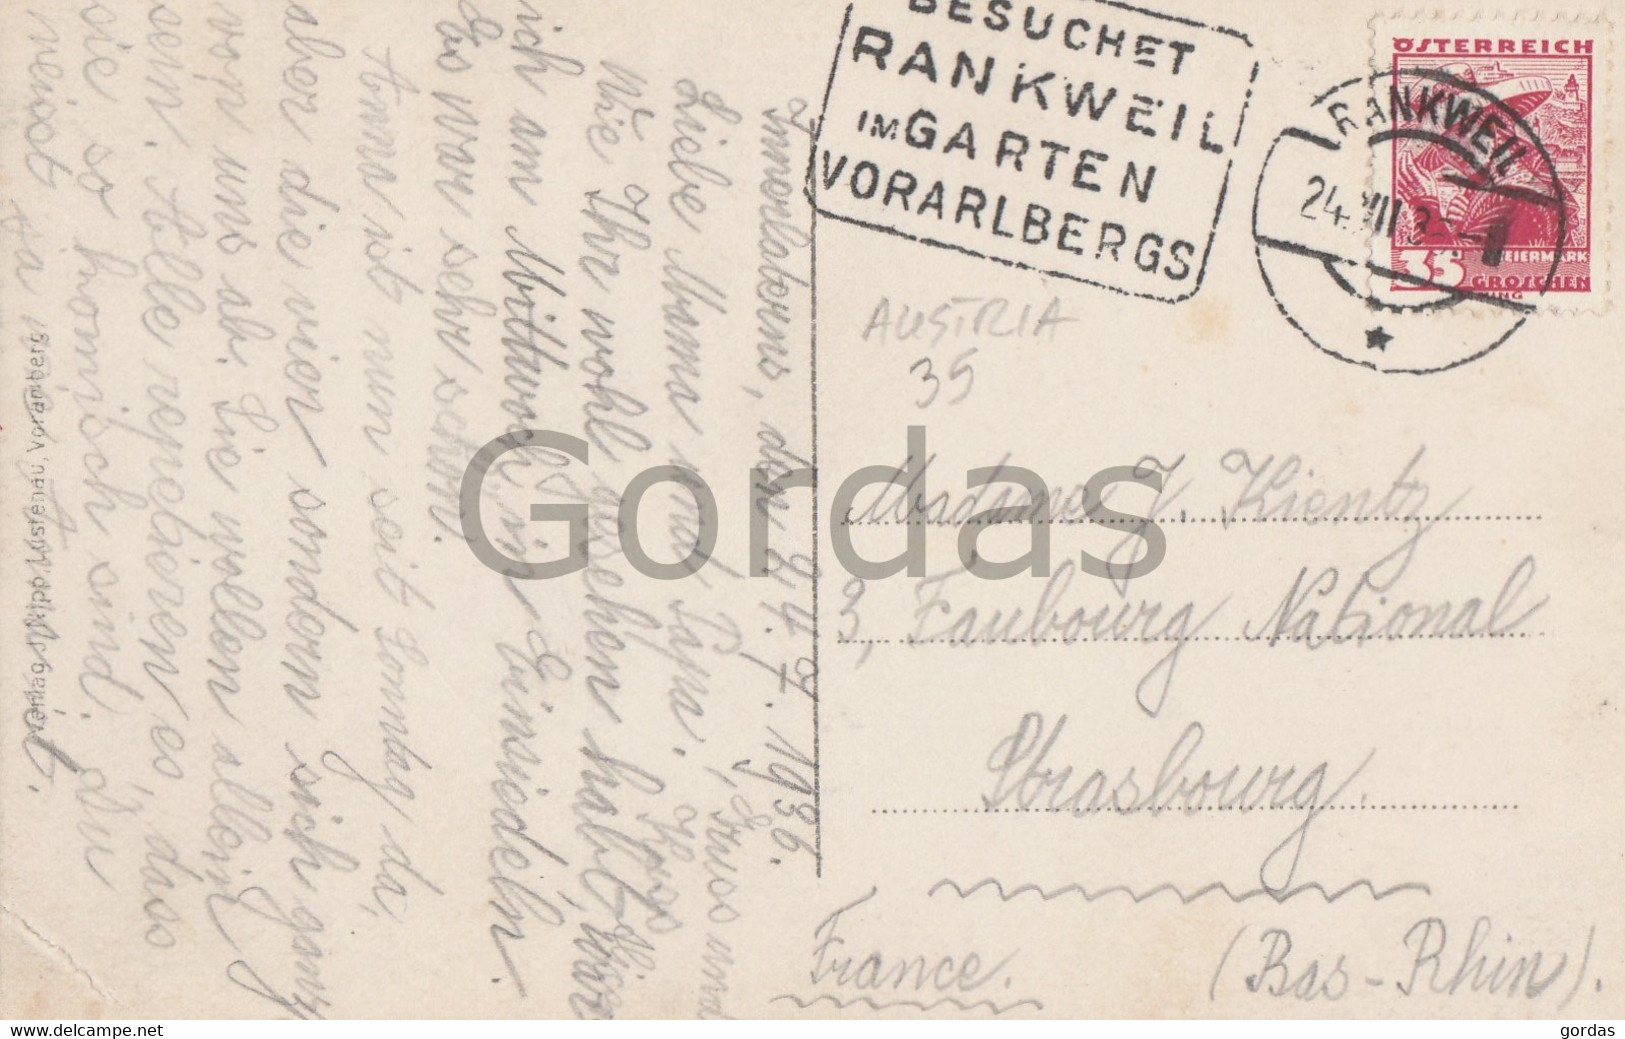 BESUCHET
RANKWEIL
IM GARTEN
VORARLBERGS
ÖSTERREICH
STEIERMARK
35 GROSCHEN
RANKWEIL
24.VII.3
AUSTRIA
35
Madame J. Kientz
3, Faubourg National
Strasbourg.
France. (Bas-Rhin).
den 24.7.1936.
Liebe Mama und Papa.
Wie Ihr wohl gesehen habt, war
ich am Mittwoch in Einsiedeln.
Es war sehr schön.
Anna ist nun seit Sonntag da,
aber die vier sondern sich ganz
von uns ab. Sie wollen allein
sein. Alle reklamieren es, dass
sie so komisch sind. Du
weisst ja
Gruss und
Verlag J. Hipp Lustenau, Vorarlberg
Gordas
delcampe.net
gordas